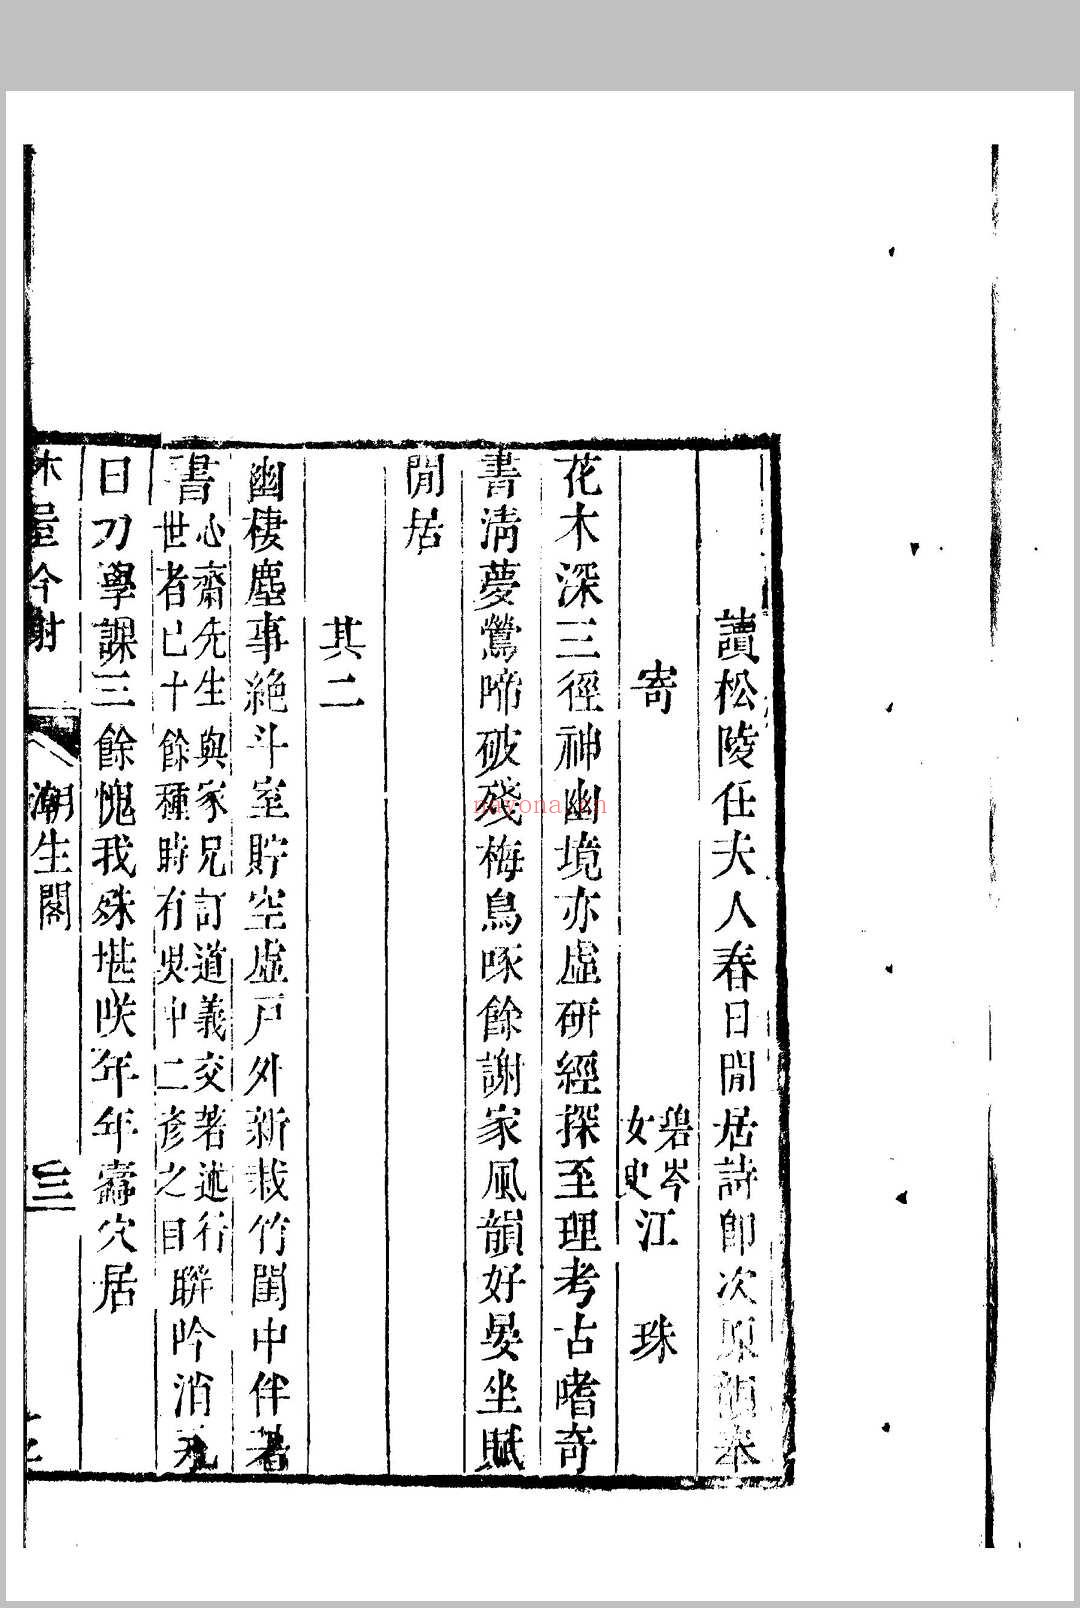 讀松陵任夫人春日閒居詩卽次原韻奉
寄
碧岑
女史
江珠
花木深三徑神幽境亦虛研經探至理考古嗜奇
書淸夢鶯啼破殘梅鳥啄餘謝家風韻好晏坐賦
閒居
其二
幽棲塵事絶斗室貯空虛戸外新栽竹閨中伴著
書
心齋先生與家兄訂道義交著述行
世者已十餘種時有吳中二彥之目
聯吟消永
日刀學課三餘愧我殊堪咲年年壽穴居
潮生閣
三
nayona.cn